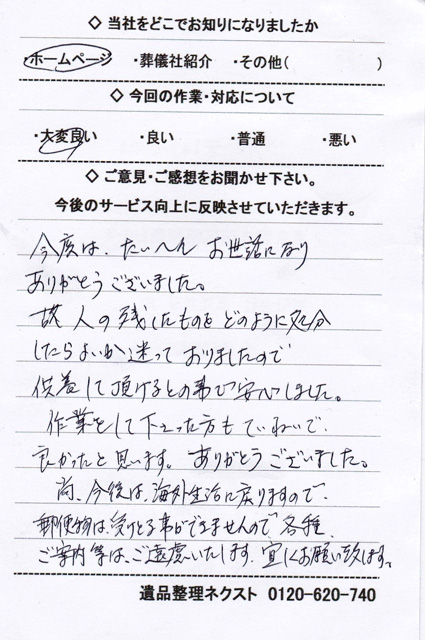 ◇ 当社をどこでお知りになりましたか
・ホームページ ・葬儀社紹介 ・その他( )
◇ 今回の作業・対応について
・大変良い ・良い ・普通 ・悪い
◇ ご意見・ご感想をお聞かせ下さい。
今後のサービス向上に反映させていただきます。
今度は、たいへん お世話になり
ありがとうございました。
故人の残したものをどのように処分
したらよいか迷っておりましたので
供養して頂けるとの事で安心しました。
作業をして下さった方もていねいで、
良かったと思います。ありがとうございました。
尚、今後は、海外生活に戻りますので、
郵便物は受けとる事ができませんので各種、
ご案内等は、ご遠慮いたします。宜しくお願い致します。
遺品整理ネクスト 0120-620-740